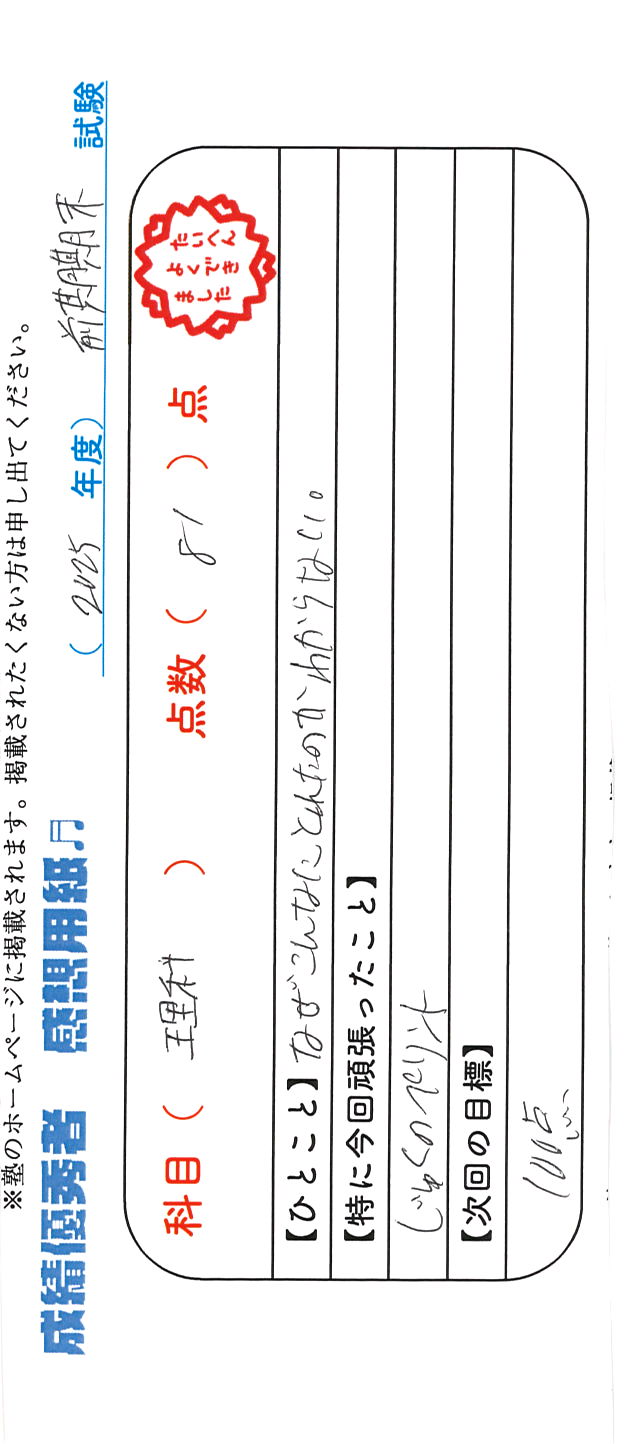 ※塾のホームページに掲載されます。掲載されたくない方は申し出てください。
成績優秀者 感想用紙♫ (2025年度) 前期期末 試験
科目(理科) 点数(81)点
たいへん
よくでき
ました
【ひとこと】なぜこんなにとれたのかわからない。
【特に今回頑張ったこと】
じゅくのプリント
【次回の目標】
100点